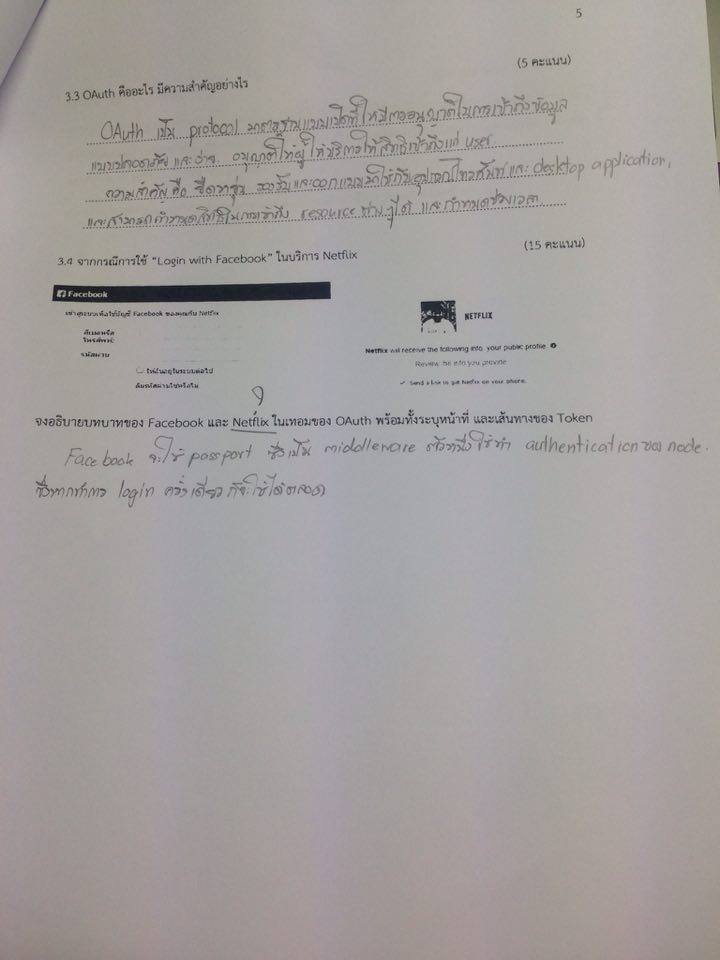 5
(5 คะแนน)
3.3 OAuth คืออะไร มีความสำคัญอย่างไร
OAuth เป็น protocol มาตรฐานแบบเปิดที่ให้มีการอนุญาตในการเข้าถึงข้อมูล
แบบปลอดภัย และง่าย อนุญาตให้ผู้ให้บริการให้สิทธิเข้าถึงแก่ user
ความสำคัญ คือ ยืดหยุ่น รองรับและออกแบบมาใช้กับอุปกรณ์โทรศัพท์ และ desktop application,
และสามารถกำหนดสิทธิในการเข้าถึง resource ต่างๆได้ และกำหนดช่วงเวลา
(15 คะแนน)
3.4 จากกรณีการใช้ "Login with Facebook" ในบริการ Netflix
Facebook
เข้าสู่ระบบเพื่อใช้บัญชี Facebook ของคุณกับ Netflix
อีเมลหรือ
โทรศัพท์:
รหัสผ่าน
ให้ฉันอยู่ในระบบต่อไป
ลืมรหัสผ่านใช่หรือไม่
NETFLIX
Netflix will receive the following info: your public profile.
Review the info you provide
Send a link to get Netflix on your phone.
จงอธิบายบทบาทของ Facebook และ Netflix ในเทอมของ OAuth พร้อมทั้งระบุหน้าที่ และเส้นทางของ Token
Facebook จะใช้ passport ซึ่งเป็น middleware ตัวหนึ่งใช้ทำ authentication ของ node.
ซึ่งหากทำการ login ครั้งเดียว ก็จะใช้ได้ตลอด